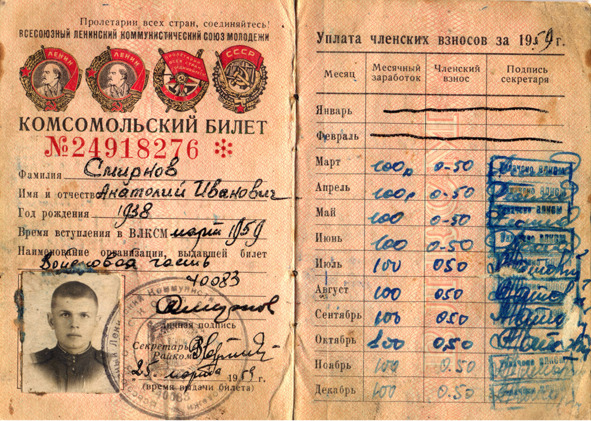 Пролетарии всех стран, соединяйтесь!
ВСЕСОЮЗНЫЙ ЛЕНИНСКИЙ КОММУНИСТИЧЕСКИЙ СОЮЗ МОЛОДЕЖИ
ЛЕНИН
ЛЕНИН
СССР
КОМСОМОЛЬСКИЙ БИЛЕТ
№24918276
Фамилия Смирнов
Имя и отчество Анатолий Иванович
Год рождения 1938
Время вступления в ВЛКСМ март 1959
Наименование организации, выдавшей билет
Войсковая часть
40083
Личная подпись
Секретарь
Райкома
25 марта 1959 г.
(время выдачи билета)
Уплата членских взносов за 1959 г.
Месяц Месячный заработок Членский взнос Подпись секретаря
Январь
Февраль
Март 100р 0-50
Апрель 100р 0-50
Май 100 0-50
Июнь 100 0-50
Июль 100 050
Август 100 050
Сентябрь 100 050
Октябрь 100 050
Ноябрь 100 0.50
Декабрь 100 0.50